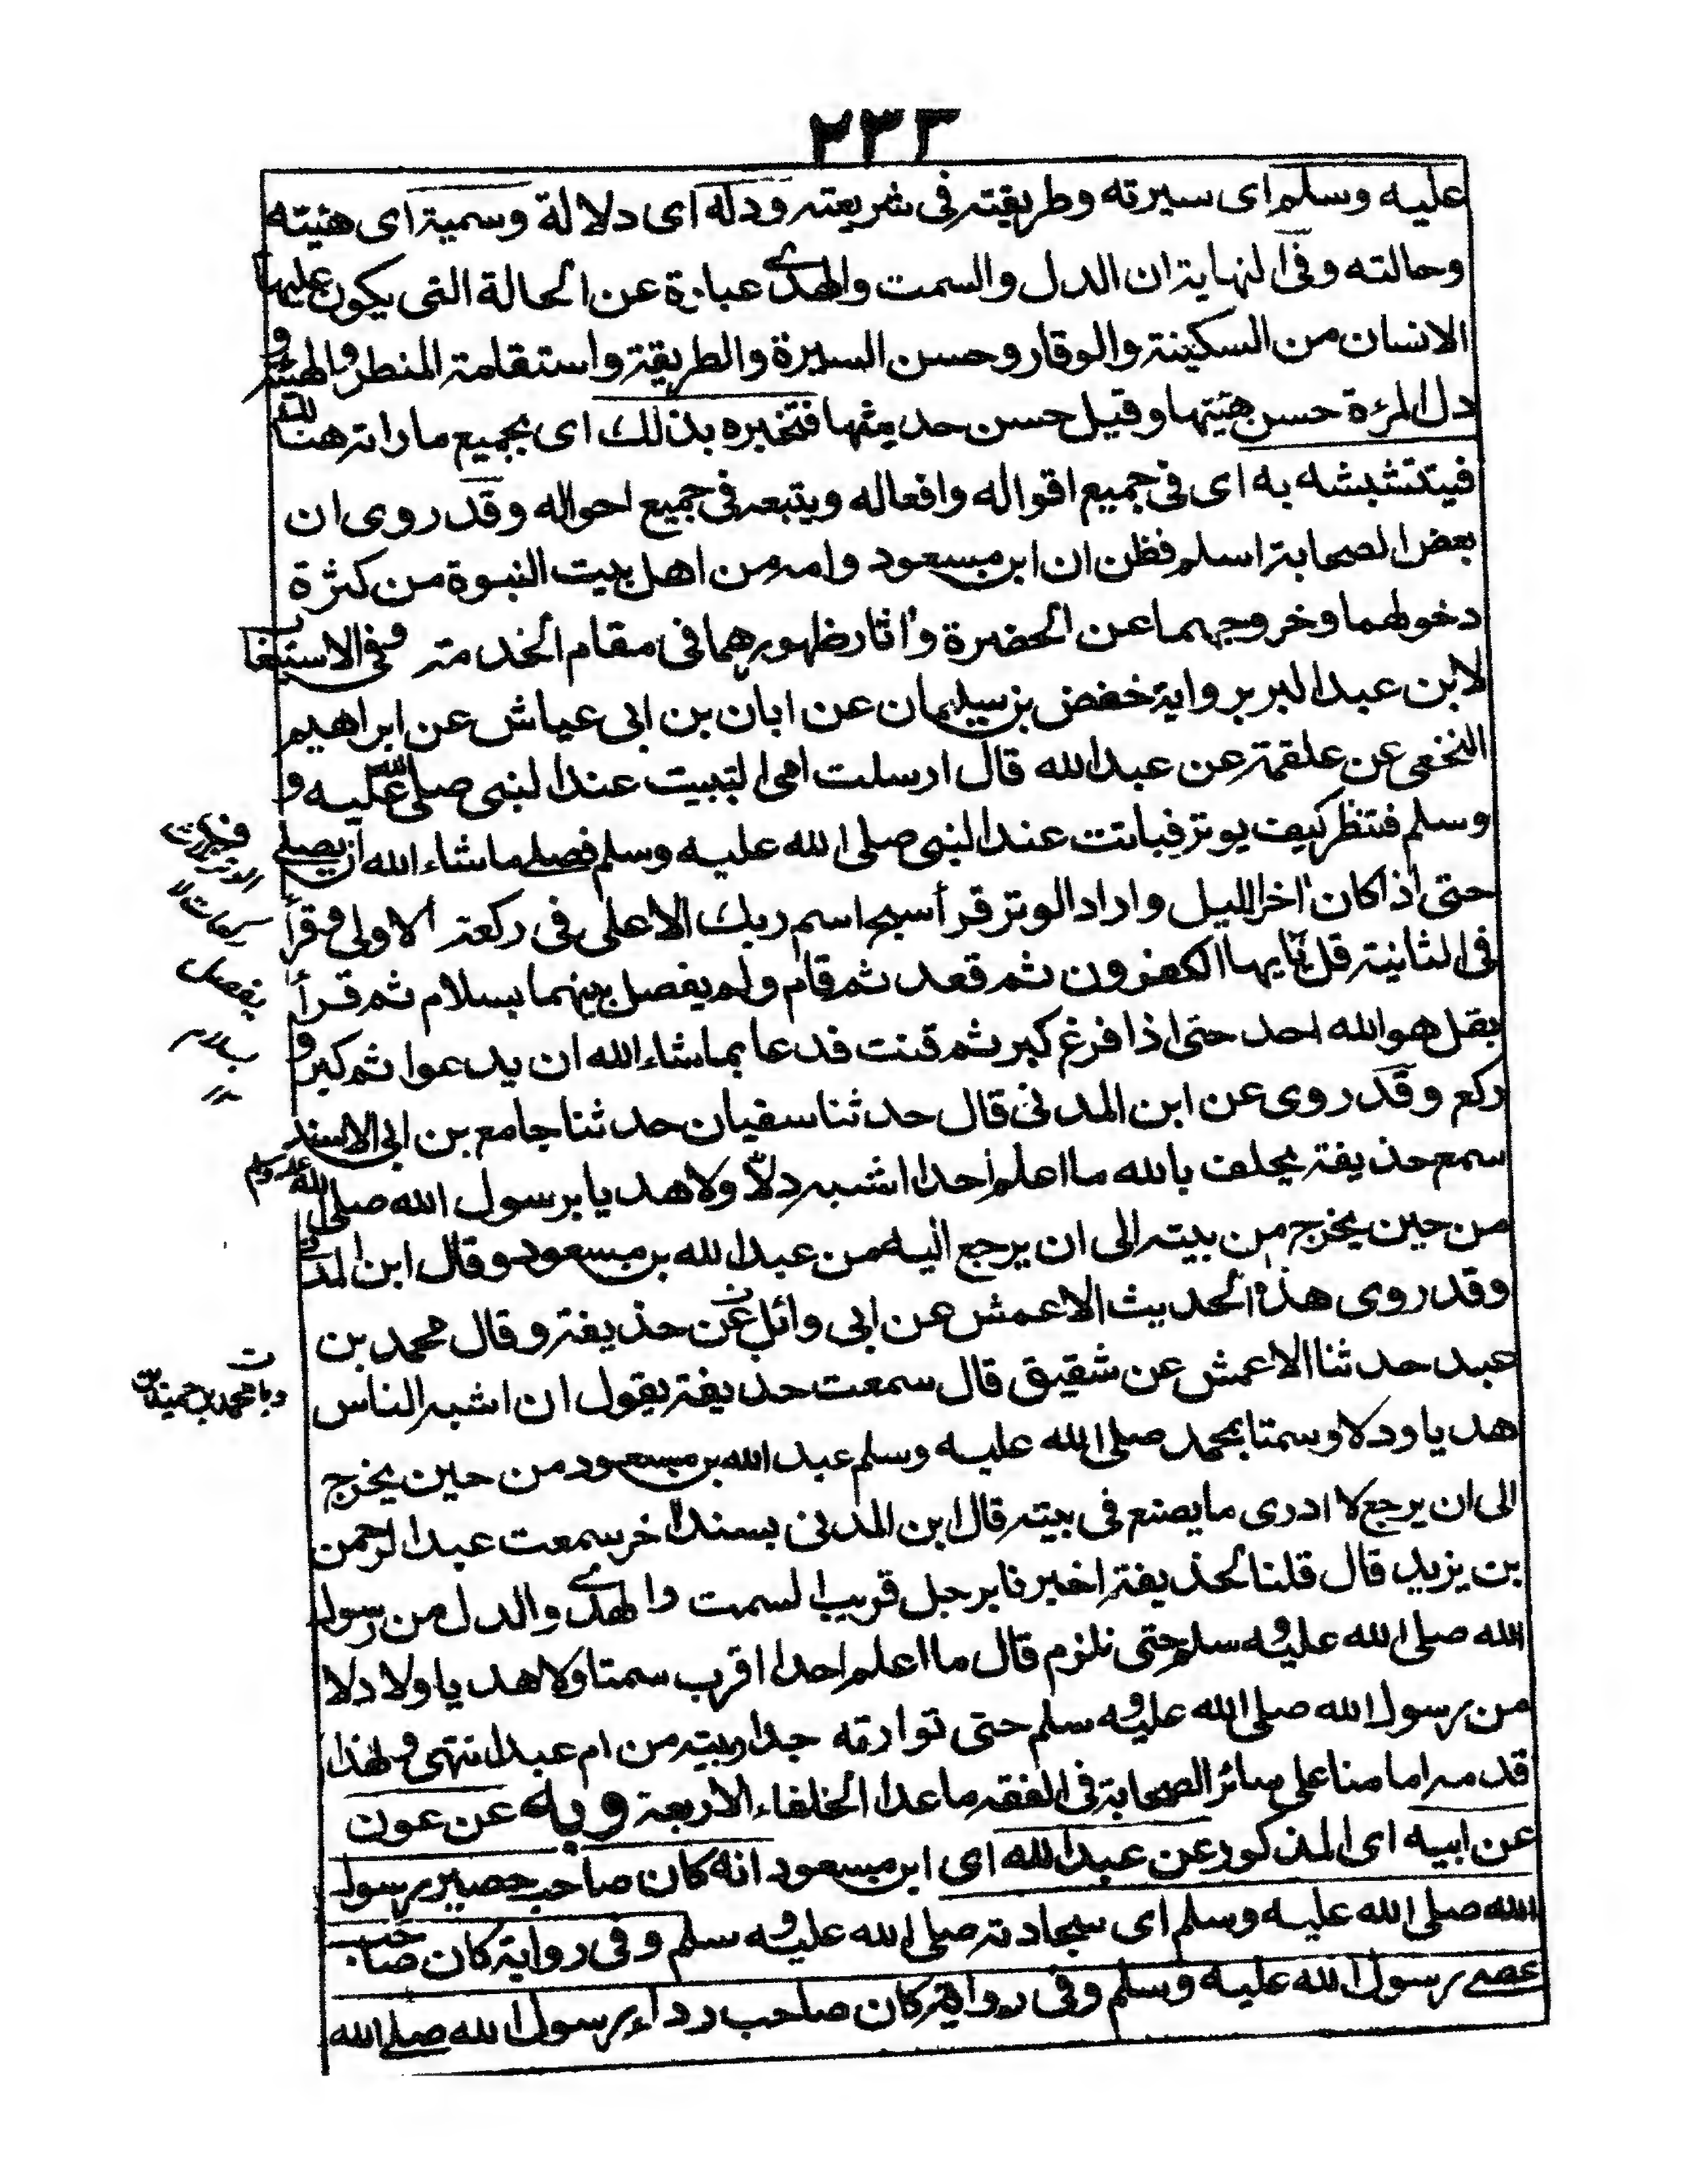 ٢٣٣
عليه وسلم اى سيرته وطريقته فى شريعته ودله اى دلالة وسمية اى هئيته
وحالته وفى النهاية ان الدل والسمت والهدى عبارة عن الحالة التى يكون عليها
الانسان من السكينة والوقار وحسن السيرة والطريقة واستقامة المنظر والهيئة و
دل المرءة حسن هيئتها وقيل حسن حديثها فتخبره بذلك اى بجميع ما راته هنالك
فيتشبه به اى فى جميع اقواله وافعاله ويتبعه فى جميع احواله وقد روى ان
بعض الصحابة اسلم فظن ان ابن مسعود وامه من اهل بيت النبوة من كثرة
دخولهما وخروجهما عن الحضرة واثار ظهورهما فى مقام الخدمة وفى الاستيعاب
لابن عبد البر برواية حفص بن سليمان عن ابان بن ابى عياش عن ابراهيم
النخعى عن علقمة عن عبد الله قال ارسلت امى لتبيت عند النبى صلى الله عليه و
وسلم فتنظر كيف يوتر فباتت عند النبى صلى الله عليه وسلم فصلى ماشاء الله ان يصلى
حتى اذا كان اخر الليل واراد الوتر قرأ سبح اسم ربك الاعلى فى ركعة الاولى وقرأ
فى الثانية قل يايها الكفرون ثم قعد ثم قام ولم يفصل بينهما بسلام ثم قرأ
بقل هو الله احد حتى اذا فرغ كبر ثم قنت فدعا بماشاء الله ان يدعوا ثم كبر و
ركع وقد روى عن ابن المدنى قال حدثنا سفيان حدثنا جامع بن ابى الاسد
سمع حذيفة يحلف بالله ما اعلم احدا اشبه دلا ولا هديا برسول الله صلى الله عليه وسلم
من حين يخرج من بيته الى ان يرجع اليه من عبد الله بن مسعود وقال ابن المدنى
وقد روى هذا الحديث الاعمش عن ابى وائل عن حذيفة وقال محمد بن
عبد حدثنا الاعمش عن شقيق قال سمعت حذيفة يقول ان اشبه الناس
هديا ودلا وسمتا بمحمد صلى الله عليه وسلم عبد الله بن مسعود من حين يخرج
الى ان يرجع لا ادرى ما يصنع فى بيته قال ابن المدنى بسند اخر سمعت عبد الرحمن
بن يزيد قال قلنا لحذيفة اخبرنا برجل قريب السمت والهدى والدل من رسول
الله صلى الله عليه وسلم حتى نلزم قال ما اعلم احدا اقرب سمتا ولا هديا ولا دلا
من رسول الله صلى الله عليه وسلم حتى توارته جدار بيته من ام عبد انتهى ولهذا
قدمه امامنا على سائر الصحابة فى الفقه ما عدا الخلفاء الاربعة وبه عن عون
عن ابيه اى المذكور عن عبد الله اى ابن مسعود انه كان صاحب حصير رسول
الله صلى الله عليه وسلم اى سجادته صلى الله عليه وسلم وفى رواية كان صاحب
عصى رسول الله عليه وسلم وفى رواية كان صاحب رداء رسول الله صلى الله
الوتر ثلاث
ركعات لا
يفصل
بسلام